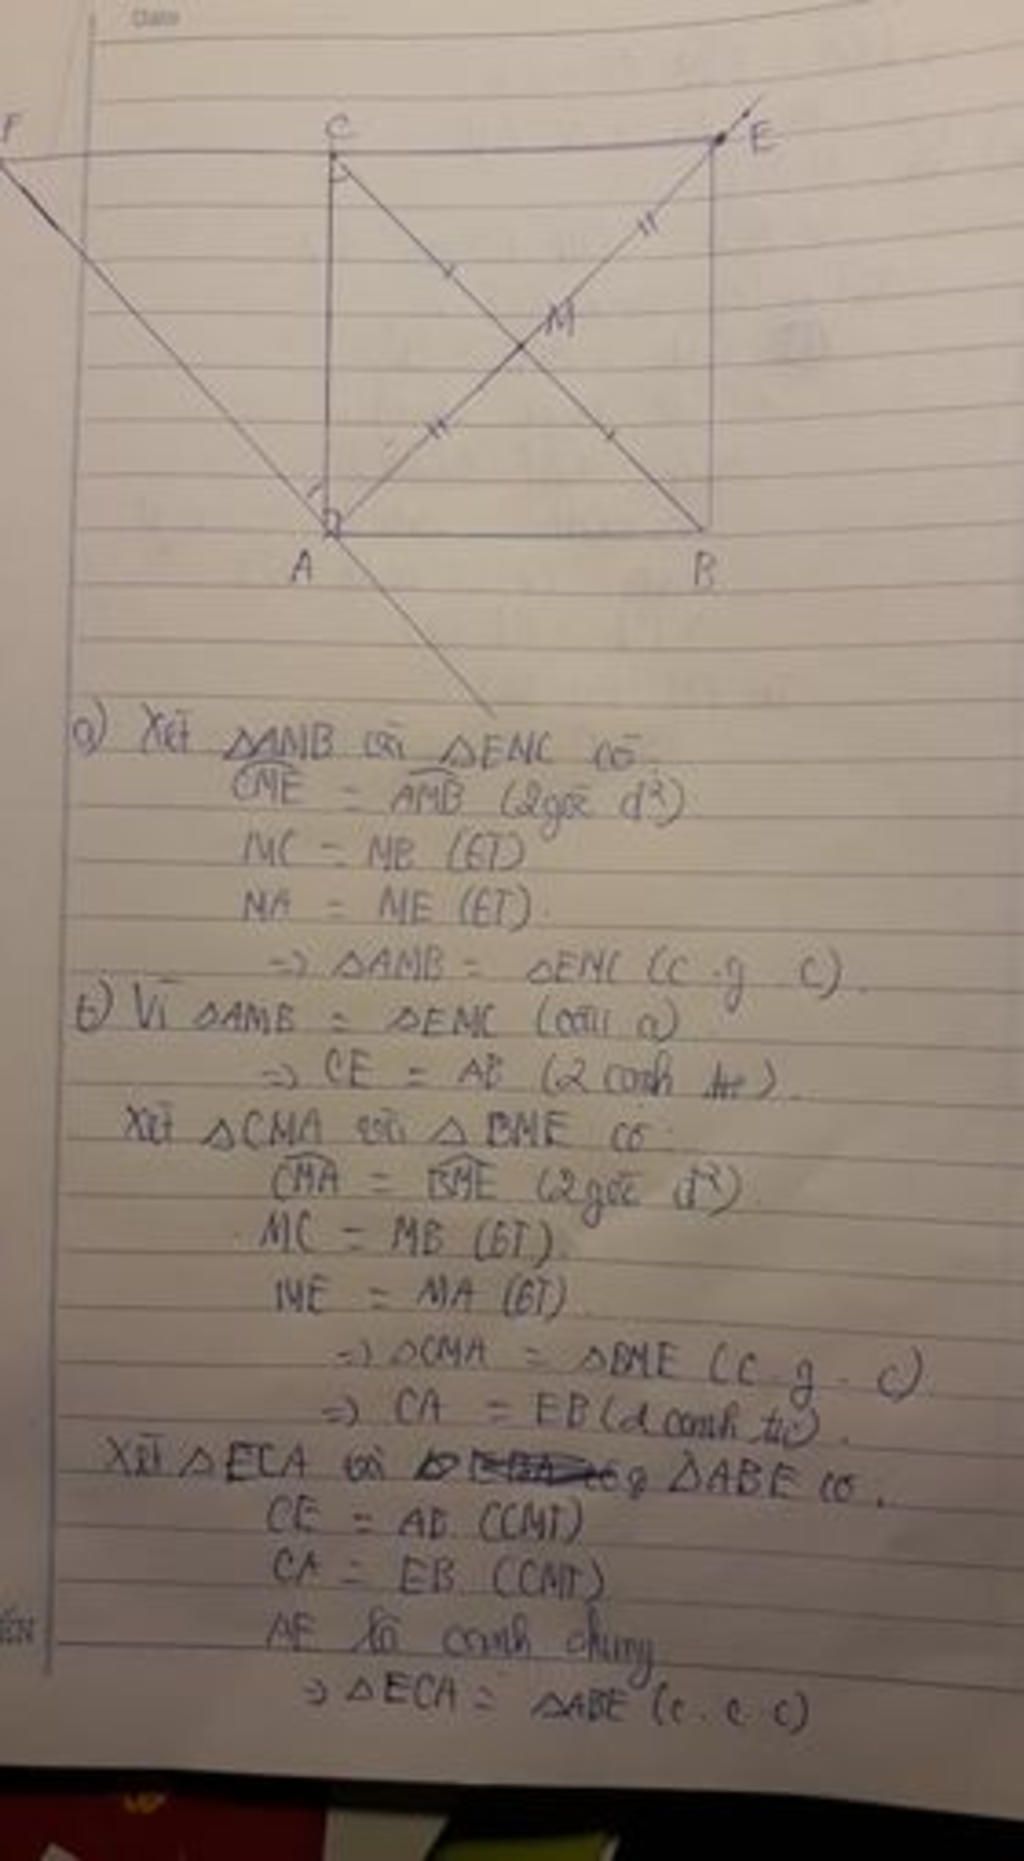 Date
F
C
E
M
A
B
a) Xét ΔAMB và ΔEMC có
CME = AMB (2 góc đ²)
MC = MB (GT)
MA = ME (GT).
=> ΔAMB = ΔEMC (c . g . c).
b) Vì ΔAMB = ΔEMC (câu a)
=> CE = AB (2 cạnh tư).
Xét ΔCMA và Δ BME có
CMA = BME (2 góc đ²)
MC = MB (GT)
ME = MA (GT)
=> ΔCMA = ΔBME (c . g . c)
=> CA = EB (2 cạnh tư).
Xét ΔECA và ΔABE có.
CE = AB (CMT)
CA = EB (CMT)
AE là cạnh chung
=> ΔECA = ΔABE (c . c . c)